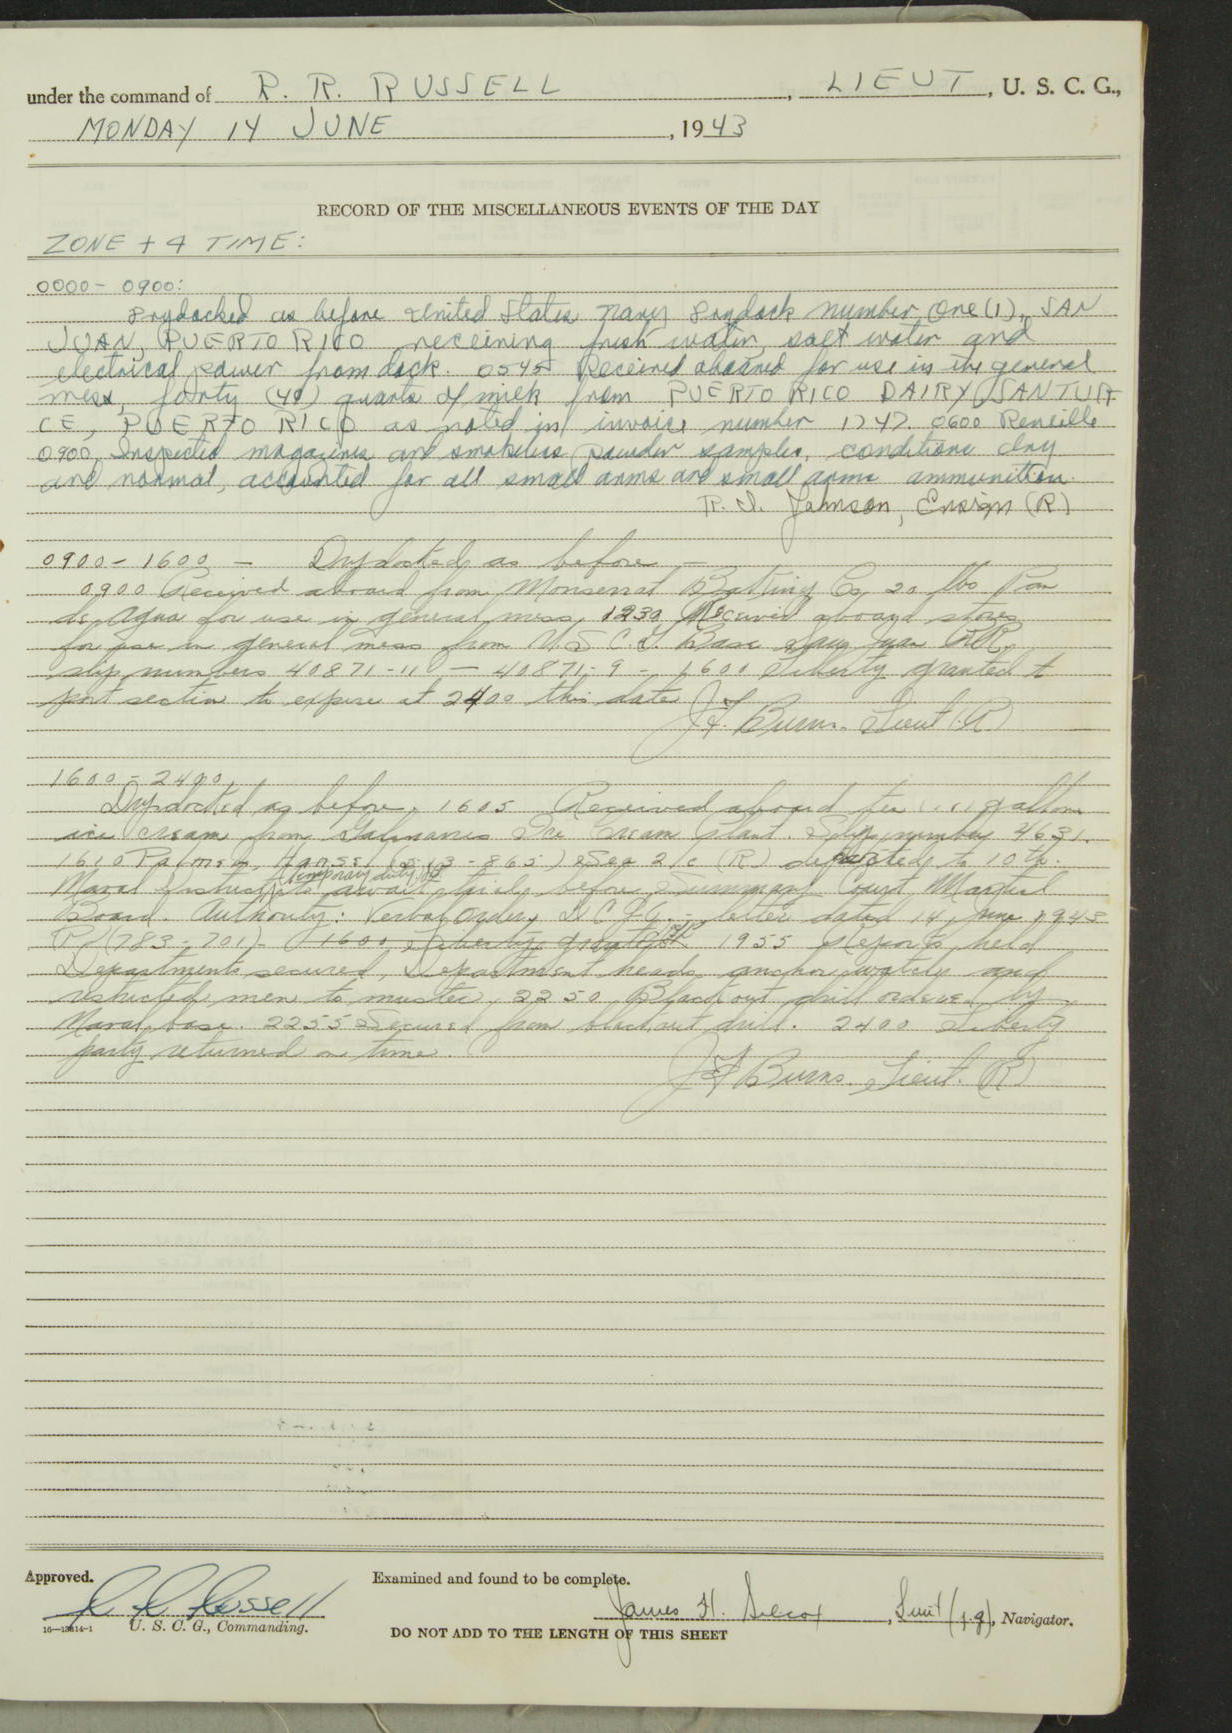 under the command of R. R. RUSSELL, LIEUT, U. S. C. G.,
MONDAY 14 JUNE, 1943
RECORD OF THE MISCELLANEOUS EVENTS OF THE DAY
ZONE + 4 TIME:
0000 - 0900:
Drydocked as before United States Navy Drydock number One (1), SAN
JUAN, PUERTO RICO receiving fresh water, salt water and
electrical power from dock. 0545 Received aboard for use in the general
mess, forty (40) quarts of milk from PUERTO RICO DAIRY, SANTUR
CE, PUERTO RICO as noted in invoice number 1747. 0600 Reveille
0900, Inspected magazines and smokeless powder samples, conditions dry
and normal, accounted for all small arms and small arms ammunition.
R. I. Johnson, Ensign (R)
0900 - 1600 - Drydocked as before -
0900 Received aboard from Monserrat Co, 20 lbs Pan
de Agua for use in general mess, 1230 Received aboard stores
for use in general mess from U.S.C.G. Base San Juan P.R.
slip numbers 40871-11 - 40871-9 - 1600 Liberty granted to
port section to expire at 2400 this date
J.F. Burns. Lieut (R)
1600 - 2400
Drydocked as before. 1605 Received aboard ten gallons
ice cream from Ice Cream Plant. Slip number 4631.
1610 Palmen, Hansel (513-865) Sea 2/c (R) departed to 10th.
temporary duty
Naval District to await trial before Summary Court Martial
Board. Authority: Verbal Order, D.C.G.O. - letter dated 14 June 1943
P (783-701) - 1600 Liberty granted 1955 Reports held
Departments secured, Department heads, anchor watch and
restricted men to muster, 2250 Blackout drill ordered by
Naval base. 2255 Secured from blackout drill. 2400 Liberty
party returned on time.
J F Burns. Lieut. (R)
Approved.
R R Russell
U. S. C. G., Commanding.
16-13814-1
Examined and found to be complete.
James H. Silcox, Lieut (j.g), Navigator.
DO NOT ADD TO THE LENGTH OF THIS SHEET